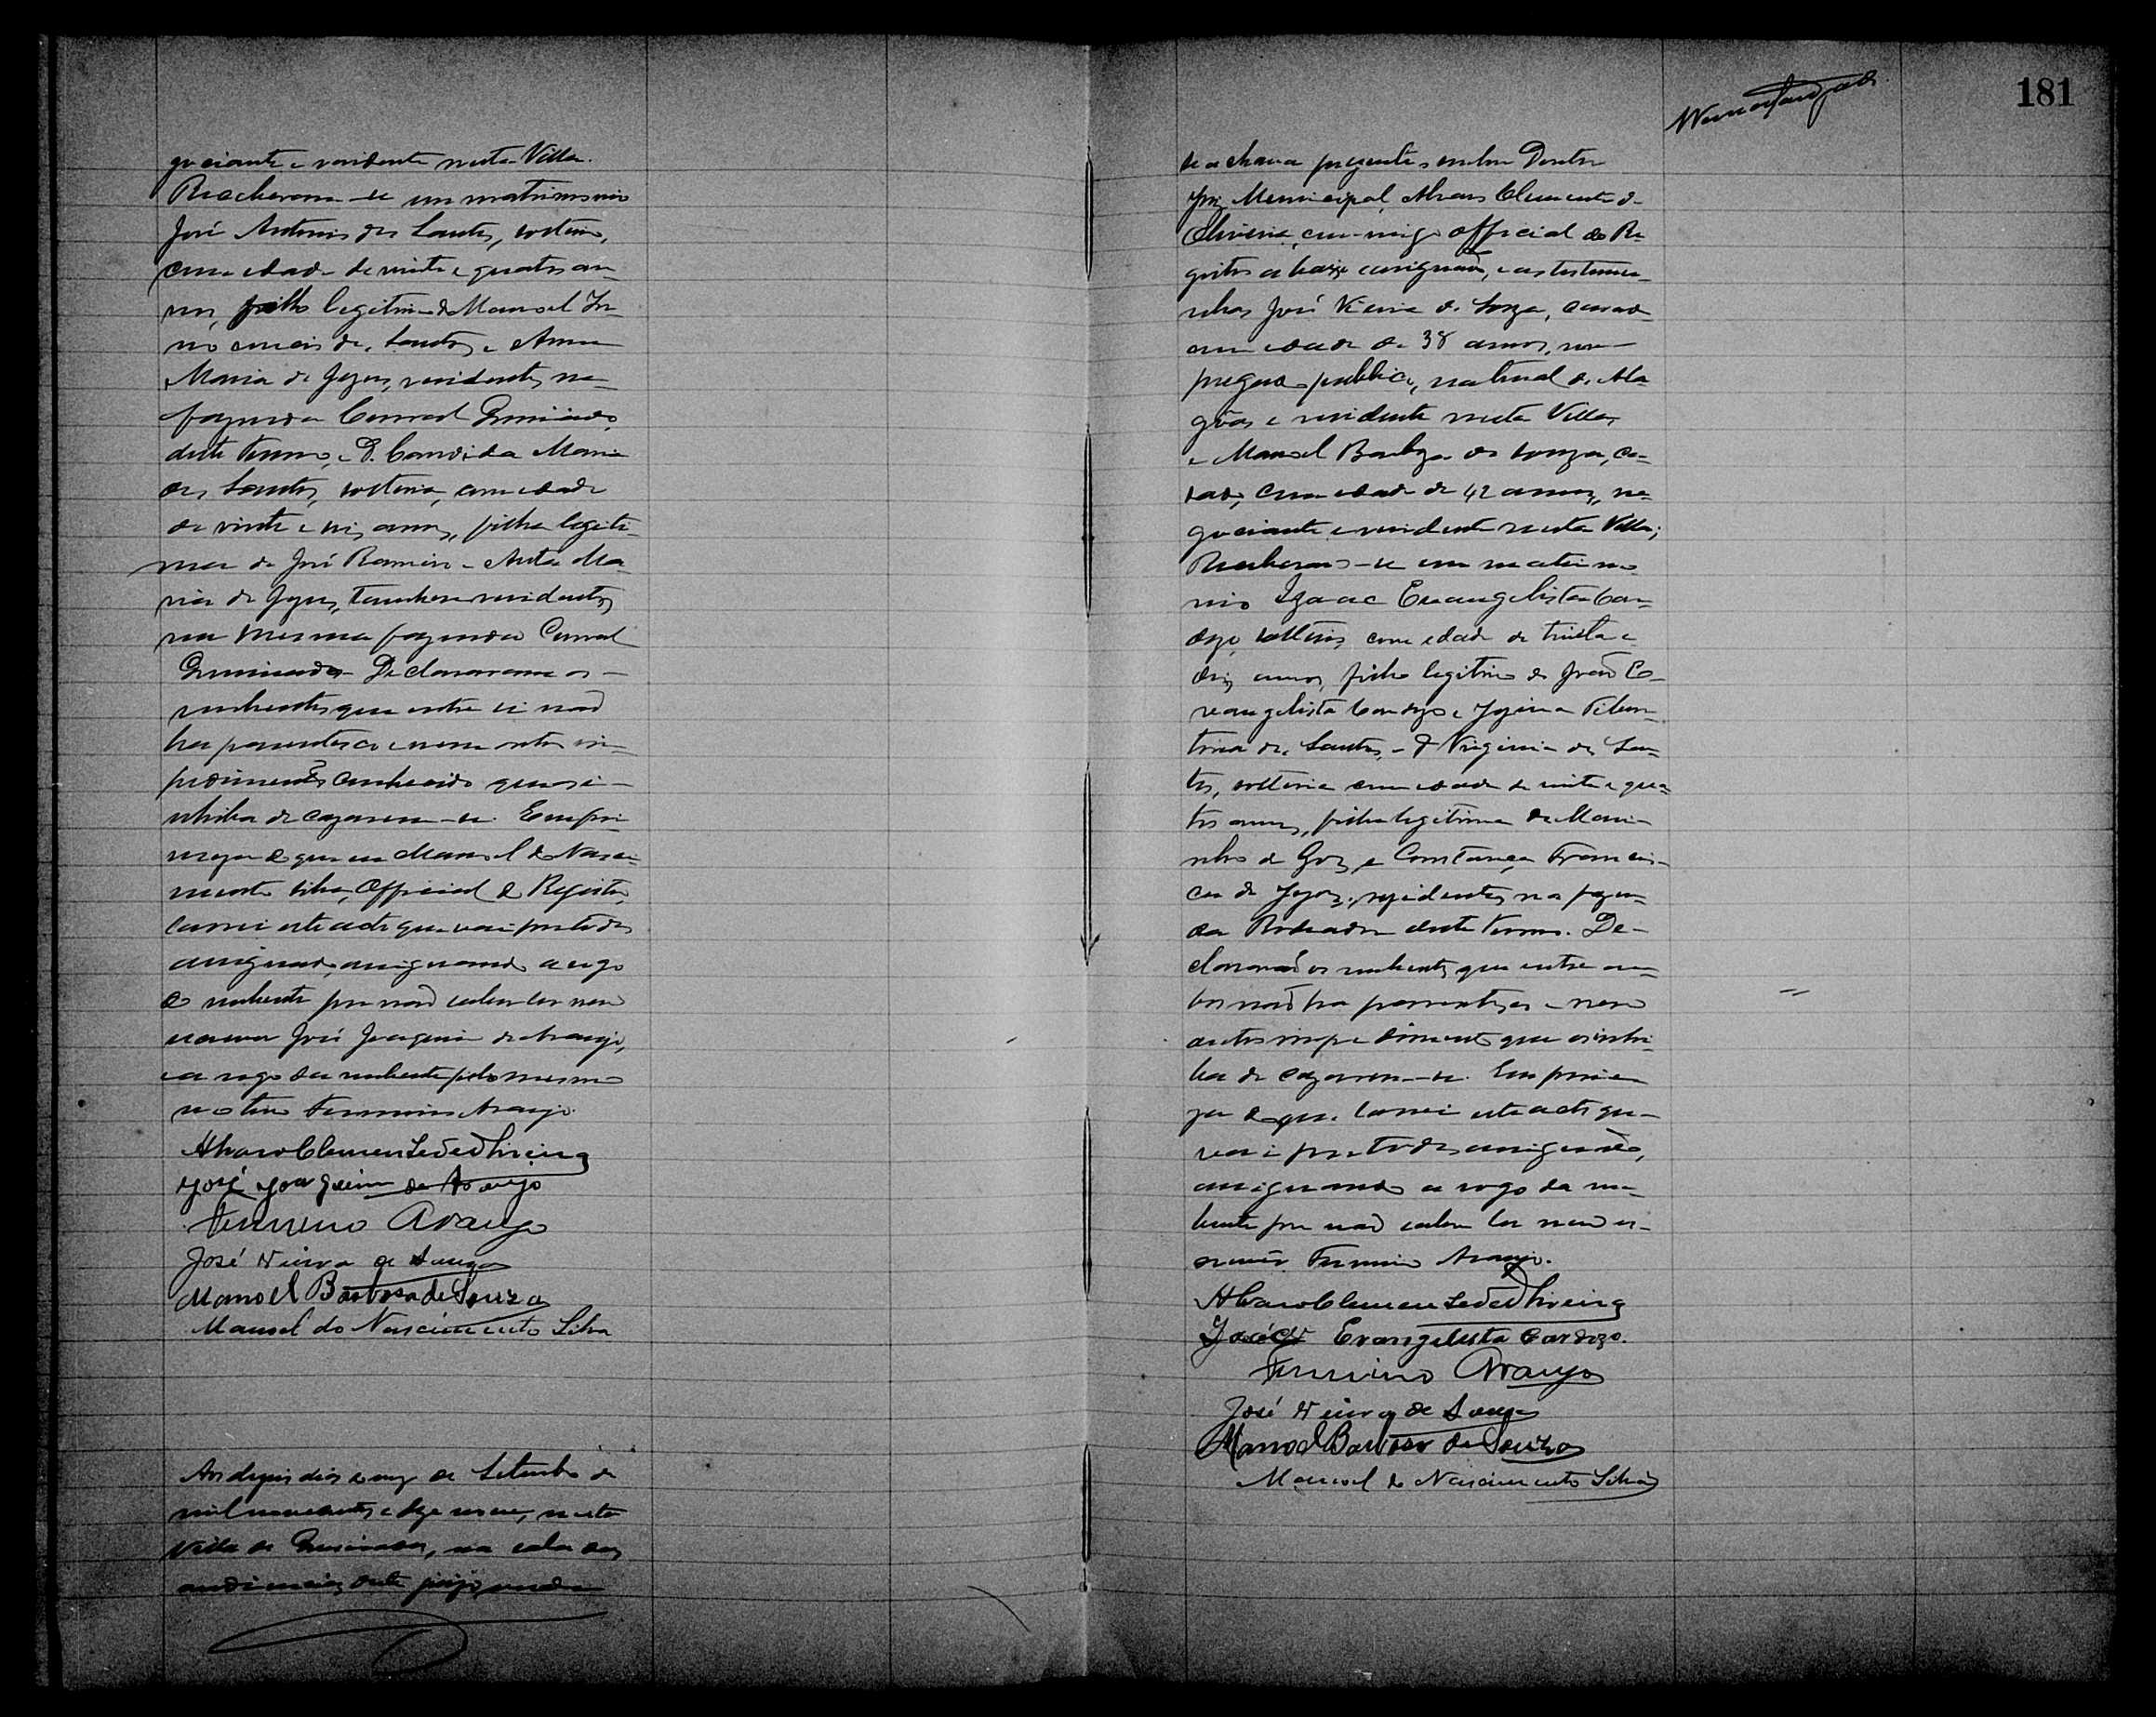 gociante e residente nesta Villa.
Receberam-se em matrimonio
José Antonio dos Santos, solteiro,
com edade de vinte e quatro an-
nos, filho legitimo de Manoel In-
nocencio dos Santos e Anna
Maria de Jezus, residentes na
fazenda Curral Queimado,
deste termo, e D. Candida Maria
dos Santos, solteira, com edade
de vinte e seis annos, filha legiti-
ma de José Ramiro e Anta Ma-
ria de Jezus, tambem residentes
na mesma fazenda Curral
Queimado. Declararam os
nubentes que entre si não
ha parentesco e nem outro im-
pedimento conhecido que os i-
nhiba de cazarem-se. Em fir-
meza do que eu Manoel do Nasci-
mento Silva, Official do Registro,
lavrei este acto que vai por todos
assignado, assignando a rogo
do nubente por não saber ler nem
escrever José Joaquim de Araujo,
e a rogo da nubente pelo mesmo
motivo Firmino Araujo.
Alvaro Clemente de Oliveira
José Joaquim de Araujo
Firmino Araujo
José Vieira de Souza
Manoel Barboza de Souza
Manoel do Nascimento Silva
Aos dezeis dias do mez de Setembro de
mil novecentos e dezenove, nesta
Villa de Queimadas, na sala das
audiencias deste juizo, onde
181
se achava presente o senhor Doutor
Juiz Municipal, Alvaro Clemente de
Oliveira, commigo official do Re-
gistro abaixo assignado, e as testemu-
nhas José Vieira de Souza, casado
com edade de 38 annos, em-
pregado publico, natural de Ala-
gôas e residente nesta Villa,
e Manoel Barboza de Souza, ca-
sado, com edade de 42 annos, ne-
gociante e residente nesta Villa;
Receberam-se em matrimo-
nio Izaac Evangelista Car-
dozo, solteiro, com edade de trinta e
dois annos, filho legitimo de João E-
vangelista Cardozo e Jozina Tibur-
tina dos Santos, e D. Virginia dos San-
tos, solteira com edade de vinte e qua-
tro annos, filha legitima de Mari-
nho de Goz e Constança Francis-
ca de Jezus, rezidentes na fazen-
da Rodeador deste termo. De-
clararão os nubentes que entre am-
bos não ha parentesco e nem
outro impedimento que os inhi-
ba de cazarem-se. Em firme-
za do que. Lavrei este acto que
vai por todos assignado,
assignando a rogo da nu-
bente por não saber ler nem es-
crever Firmino Araujo.
Alvaro Clemente de Oliveira
Evangelista Cardozo.
Firmino Araujo
José Vieira de Souza
Manoel Barboza de Souza
Manoel do Nascimento Silva